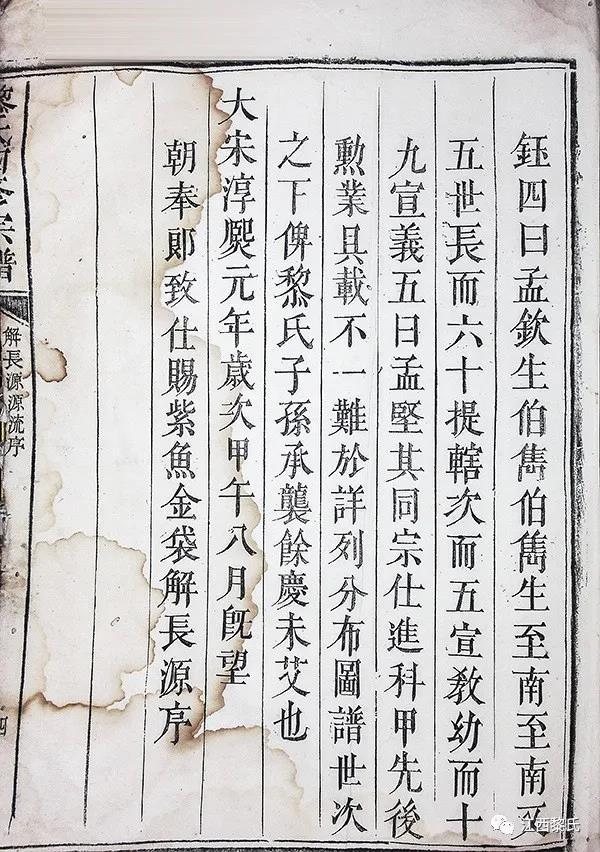 鈺四曰孟欽生伯雋伯雋生至南至南又
五世長而六十提轄次而五宣教幼而十
九宣義五曰孟堅其同宗仕進科甲先後
勲業具載不一難於詳列分布圖譜世次
之下俾黎氏子孫承襲餘慶未艾也
大宋淳熙元年歲次甲午八月旣望
朝奉郎致仕賜紫魚金袋解長源序
宗譜
解長源源流序
四
江西黎氏